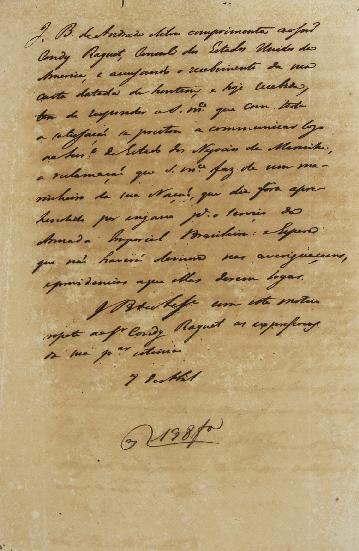 J. B. de Andrada e Silva comprimenta ao Snr.
Condy Raguet, Consul dos Estados Unidos da
America, e accusando o recebimento da sua
carta datada de hontem, e hoje recebida,
tem de responder a S. mce. que com toda
a satisfação se prestou a communicar logo
de Estado dos Negocios da Marinha,
a reclamação que S. mce. faz de um ma-
rinheiro da sua Nação, que diz fora apre-
hendido por engano pa. o serviço da
Armada Imperial Brasileira: e espera
que não haverá demora nas averiguaçoens,
e providencias a que ellas derem logar.
com este motivo
repete ao Sr. Condy Raguet as expressoens
da sua par. estima
7 de Abril
198